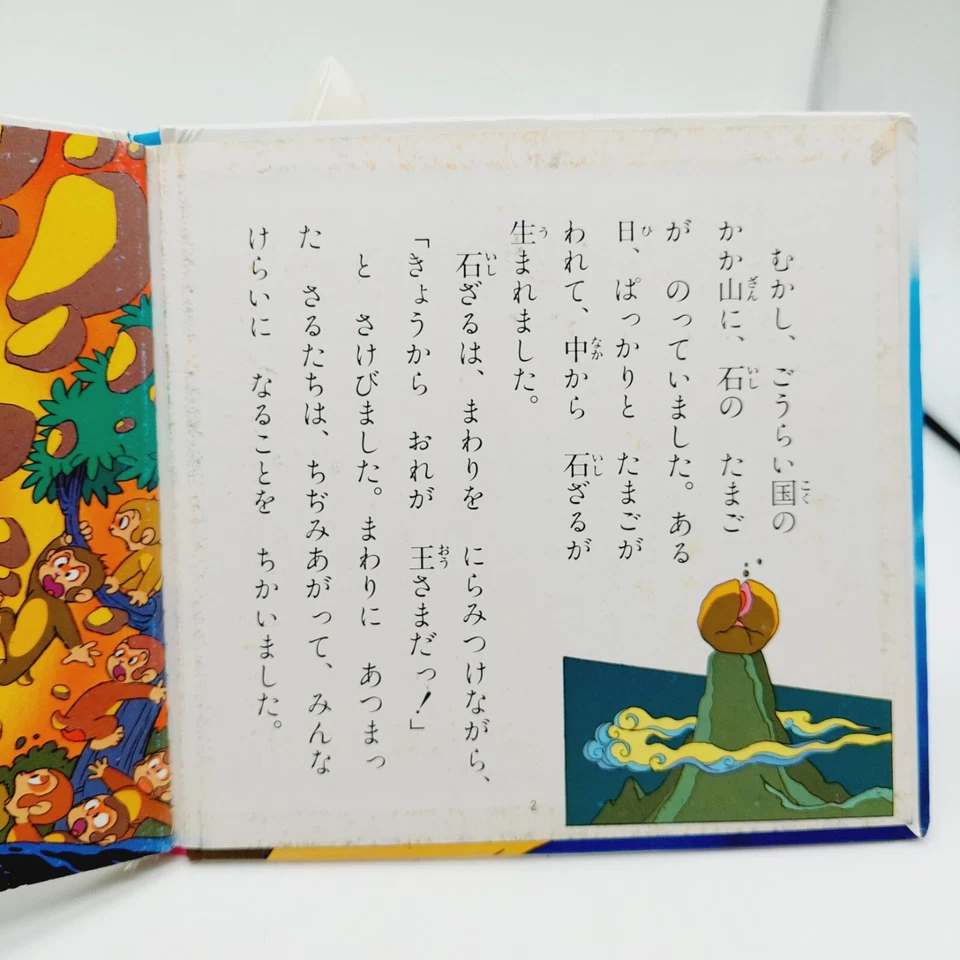 むかし、ごうらい国の
かか山に、石の たまご
が のっていました。ある
日、ぱっかりと たまごが
われて、中から 石ざるが
生まれました。
石ざるは、まわりを にらみつけながら、
「きょうから おれが 王さまだっ!」
と さけびました。まわりに あつまっ
た さるたちは、ちぢみあがって、みんな
けらいに なることを ちかいました。
2